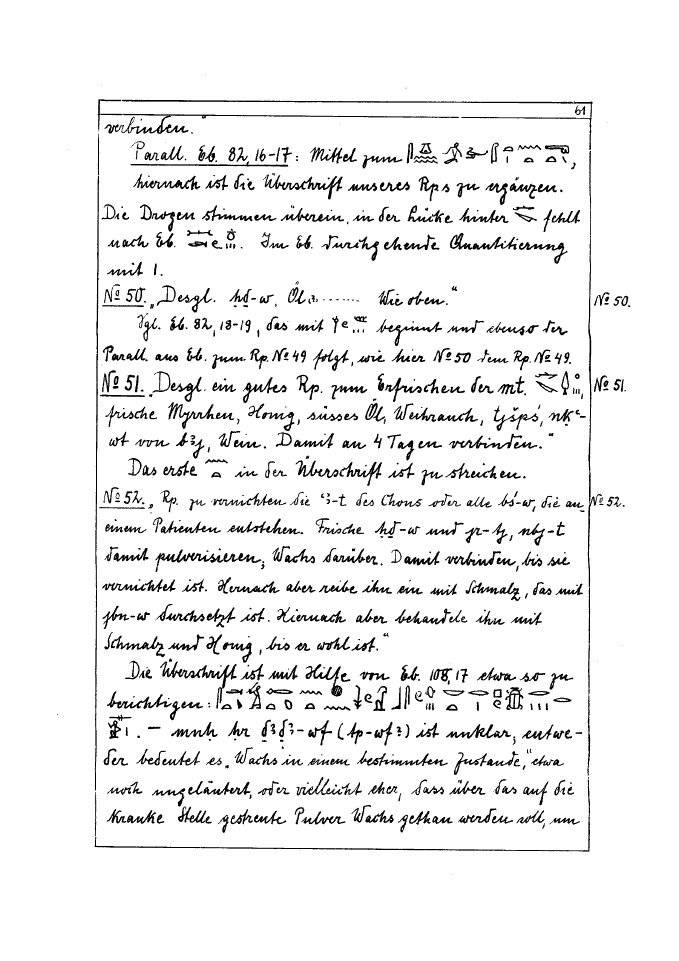 61
verbinden."
Parall. Eb. 82, 16-17: Mittel zum
hiernach ist die Überschrift unseres Rps zu ergänzen.
Die Drogen stimmen überein, in der Lücke hinter fehlt
nach Eb. Im Eb. durchgehende Quantitierung
mit 1.
No 50. „Desgl. ḥḏ-w, Öl ........ Wie oben."
No 50.
Vgl. Eb. 82, 18-19, das mit beginnt und ebenso der
Parall. aus Eb. zum Rp. No 49 folgt, wie hier No 50 dem Rp. No 49.
No 51. „Desgl. ein gutes Rp. zum Erfrischen der mt.
No 51.
frische Myrrhen, Honig, süsses Öl, Weihrauch, tjšpś,
wt von Wein. Damit an 4 Tagen verbinden."
Das erste in der Überschrift ist zu streichen.
No 52. „Rp. zu vernichten die ꜥꜣ-t des Chons oder alle bś-w, die an
No 52.
einem Patienten entstehen. Frische ḥḏ-w und nbj-t
damit pulverisieren; Wachs darüber. Damit verbinden, bis sie
vernichtet ist. Hernach aber reibe ihn ein mit Schmalz, das mit
jbn-w durchsetzt ist. Hiernach aber behandele ihn mit
Schmalz und Honig, bis er wohl ist."
Die Überschrift ist mit Hilfe von Eb. 108, 17 etwa so zu
berichtigen:
— mnḥ ḥr ist unklar; entwe-
der bedeutet es „Wachs in einem bestimmten Zustande," etwa
noch ungeläutert, oder vielleicht eher, dass über das auf die
kranke Stelle gestreute Pulver Wachs gethan werden soll, um